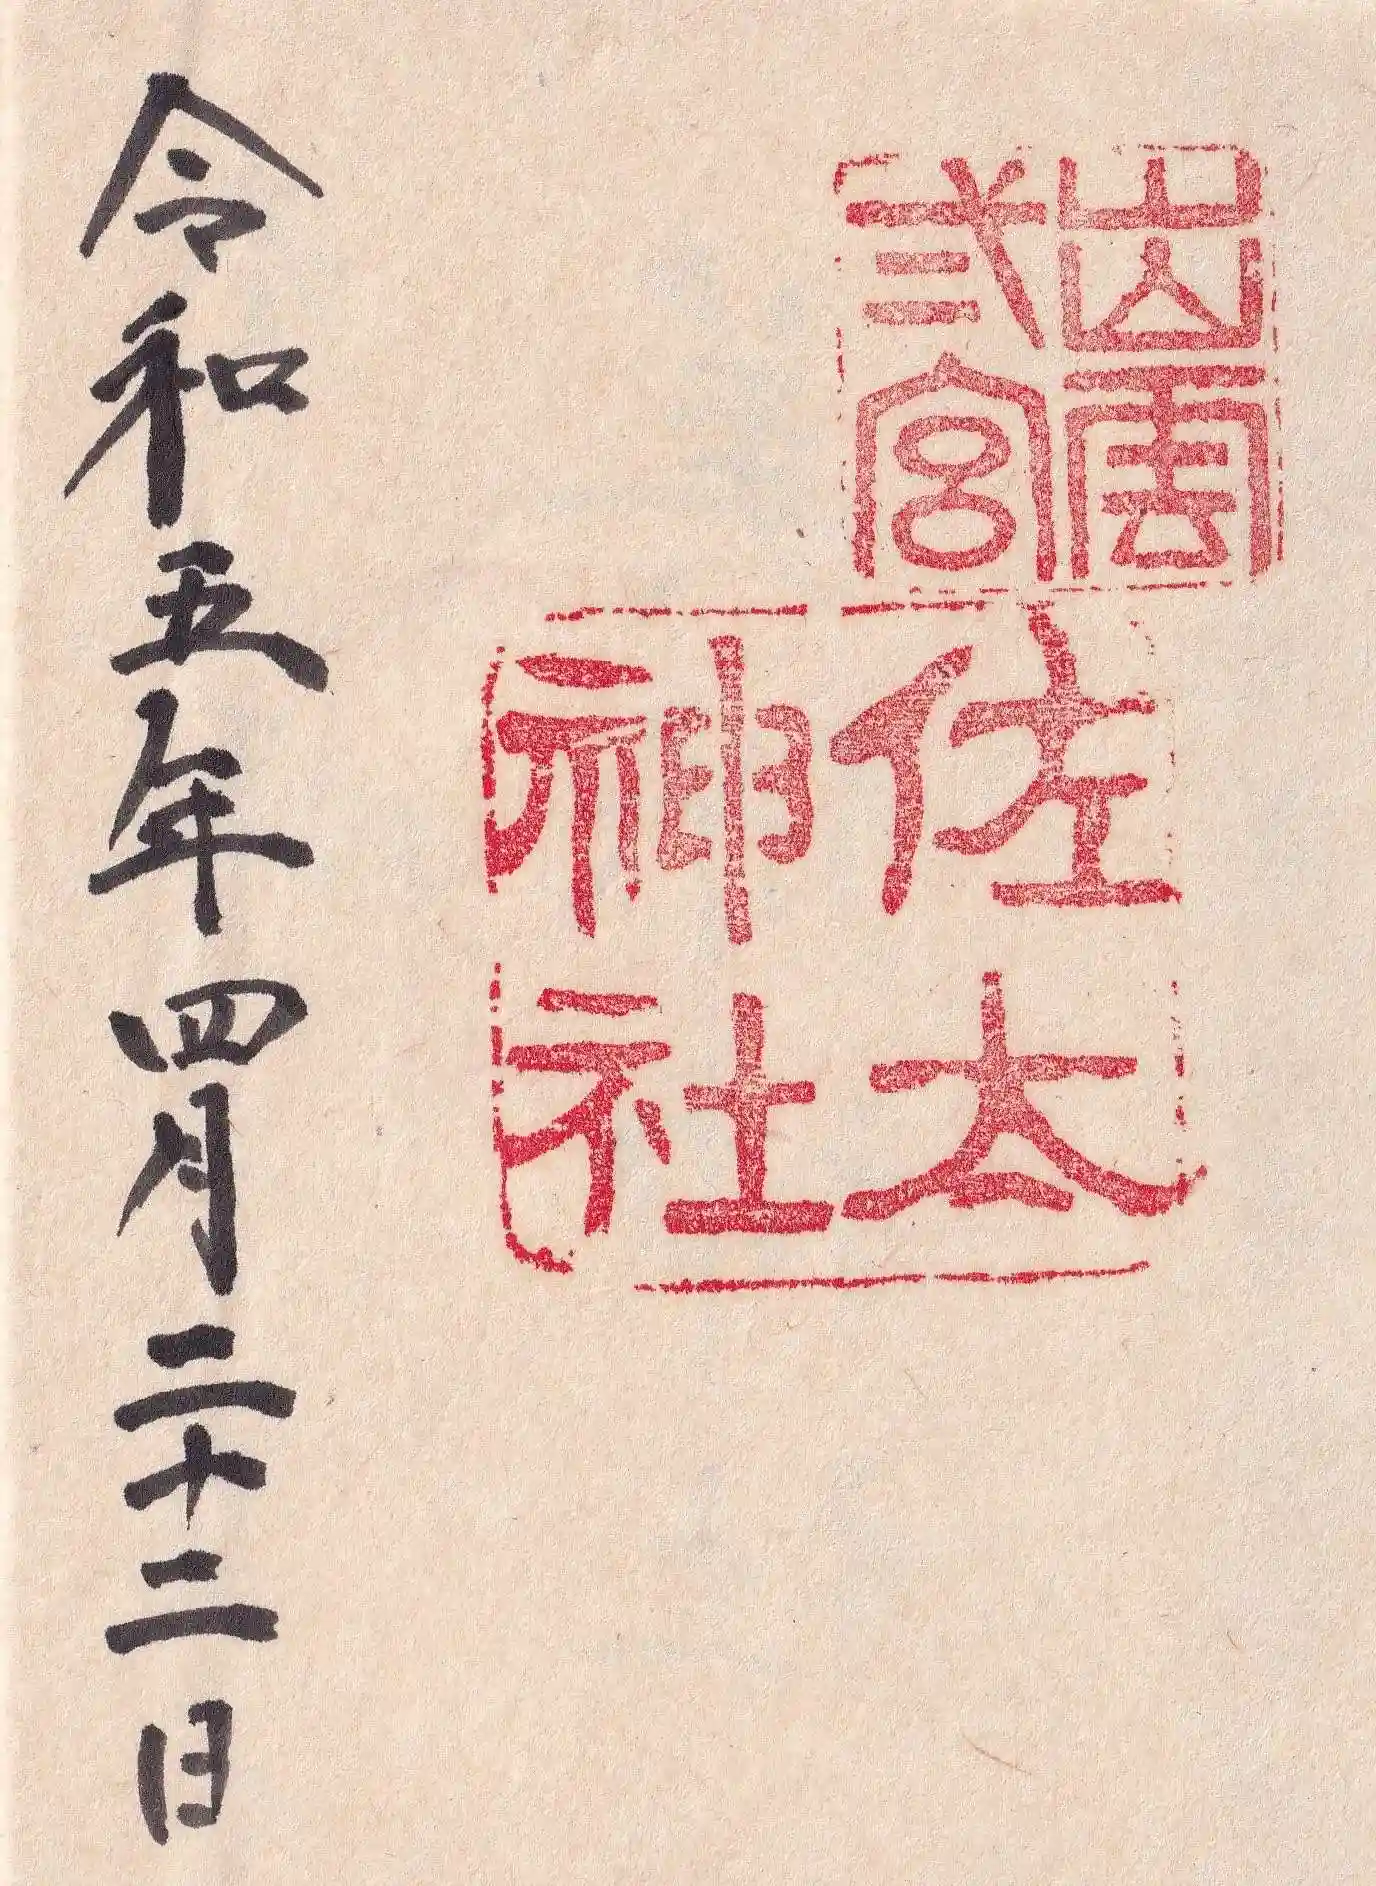 出雲
弍宮
佐太
神社
令和五年四月二十二日